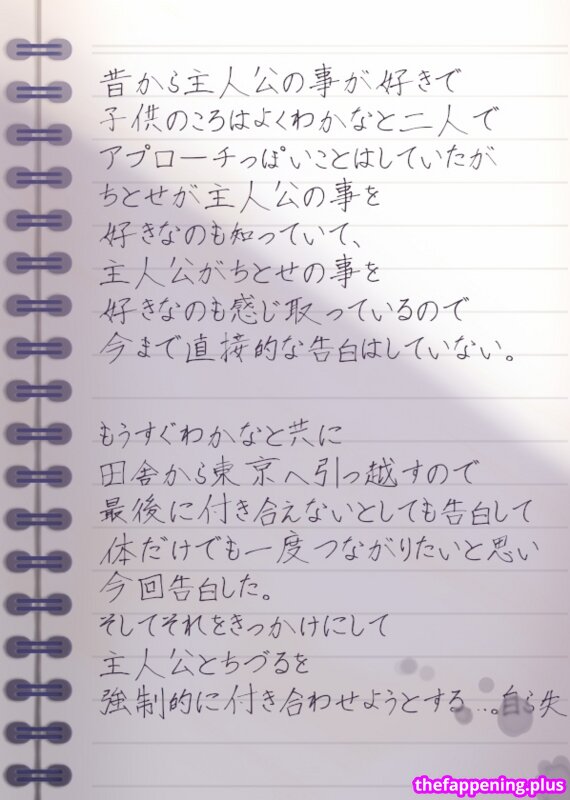 昔から主人公の事が好きで
子供のころはよくわかなと二人で
アプローチっぽいことはしていたが
ちとせが主人公の事を
好きなのも知っていて、
主人公がちとせの事を
好きなのも感じ取っているので
今まで直接的な告白はしていない。
もうすぐわかなと共に
田舎から東京へ引っ越すので
最後に付き合えないとしても告白して
体だけでも一度つながりたいと思い
今回告白した。
そしてそれをきっかけにして
主人公とちづるを
強制的に付き合わせようとする…。自ら失
thefappening.plus